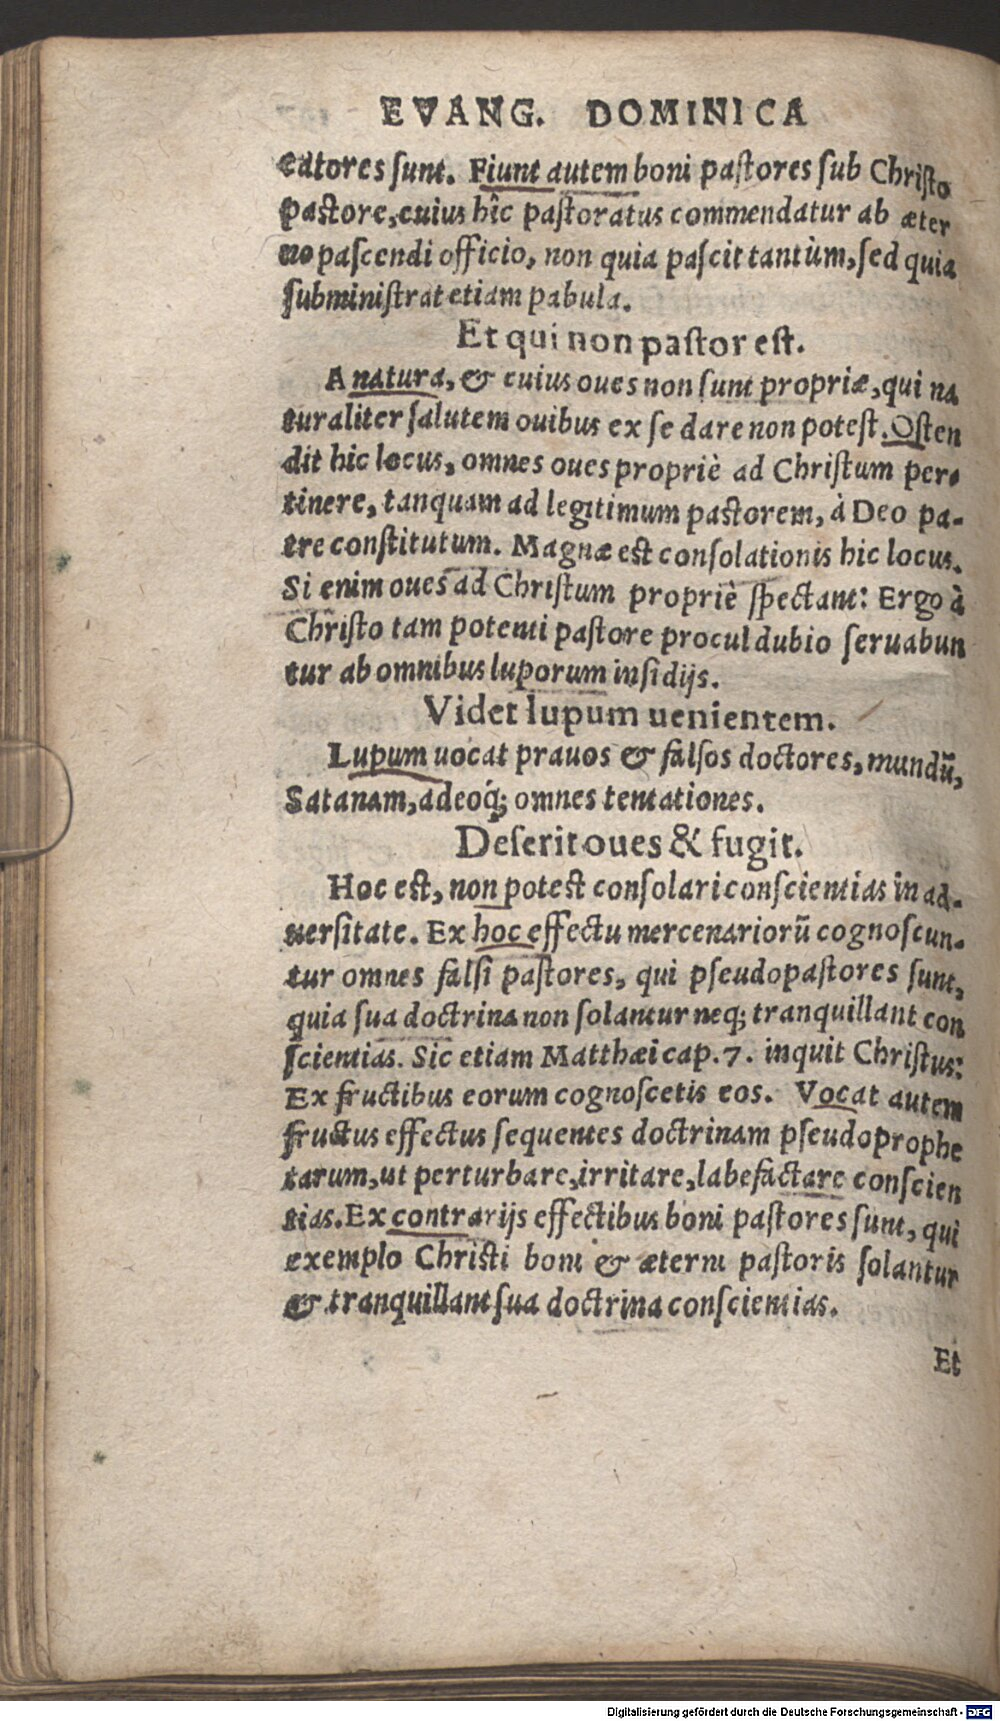 EVANG. DOMINICA
catores sunt. Fiunt autem boni pastores sub Christo
Pastore, cuius hîc pastoratus commendatur ab æter
no pascendi officio, non quia pascit tantùm, sed quia
subministrat etiam pabula.
Et qui non pastor est.
A natura, & cuius oues non sunt propriæ, qui na
turaliter salutem ouibus ex se dare non potest. Osten
dit hic locus, omnes oues propriè ad Christum per-
tinere, tanquam ad legitimum pastorem, à Deo pa-
tre constitutum. Magnæ est consolationis hic locus.
Si enim oues ad Christum propriè spectant: Ergo à
Christo tam potenti pastore procul dubio seruabun
tur ab omnibus luporum insidijs.
Videt lupum uenientem.
Lupum uocat prauos & falsos doctores, mundũ,
Satanam, adeoq́; omnes tentationes.
Deserit oues & fugit.
Hoc est, non potest consolari conscientias in ad-
uersitate. Ex hoc effectu mercenariorũ cognoscun-
tur omnes falsi pastores, qui pseudopastores sunt,
quia sua doctrina non solantur neq; tranquillant con
scientias. Sic etiam Matthæi cap. 7. inquit Christus:
Ex fructibus eorum cognoscetis eos. Vocat autem
fructus effectus sequentes doctrinam pseudoprophe
tarum, ut perturbare, irritare, labefactare conscien
tias. Ex contrarijs effectibus boni pastores sunt, qui
exemplo Christi boni & æterni pastoris solantur
& tranquillant sua doctrina conscientias.
Et
Digitalisierung gefördert durch die Deutsche Forschungsgemeinschaft - DFG